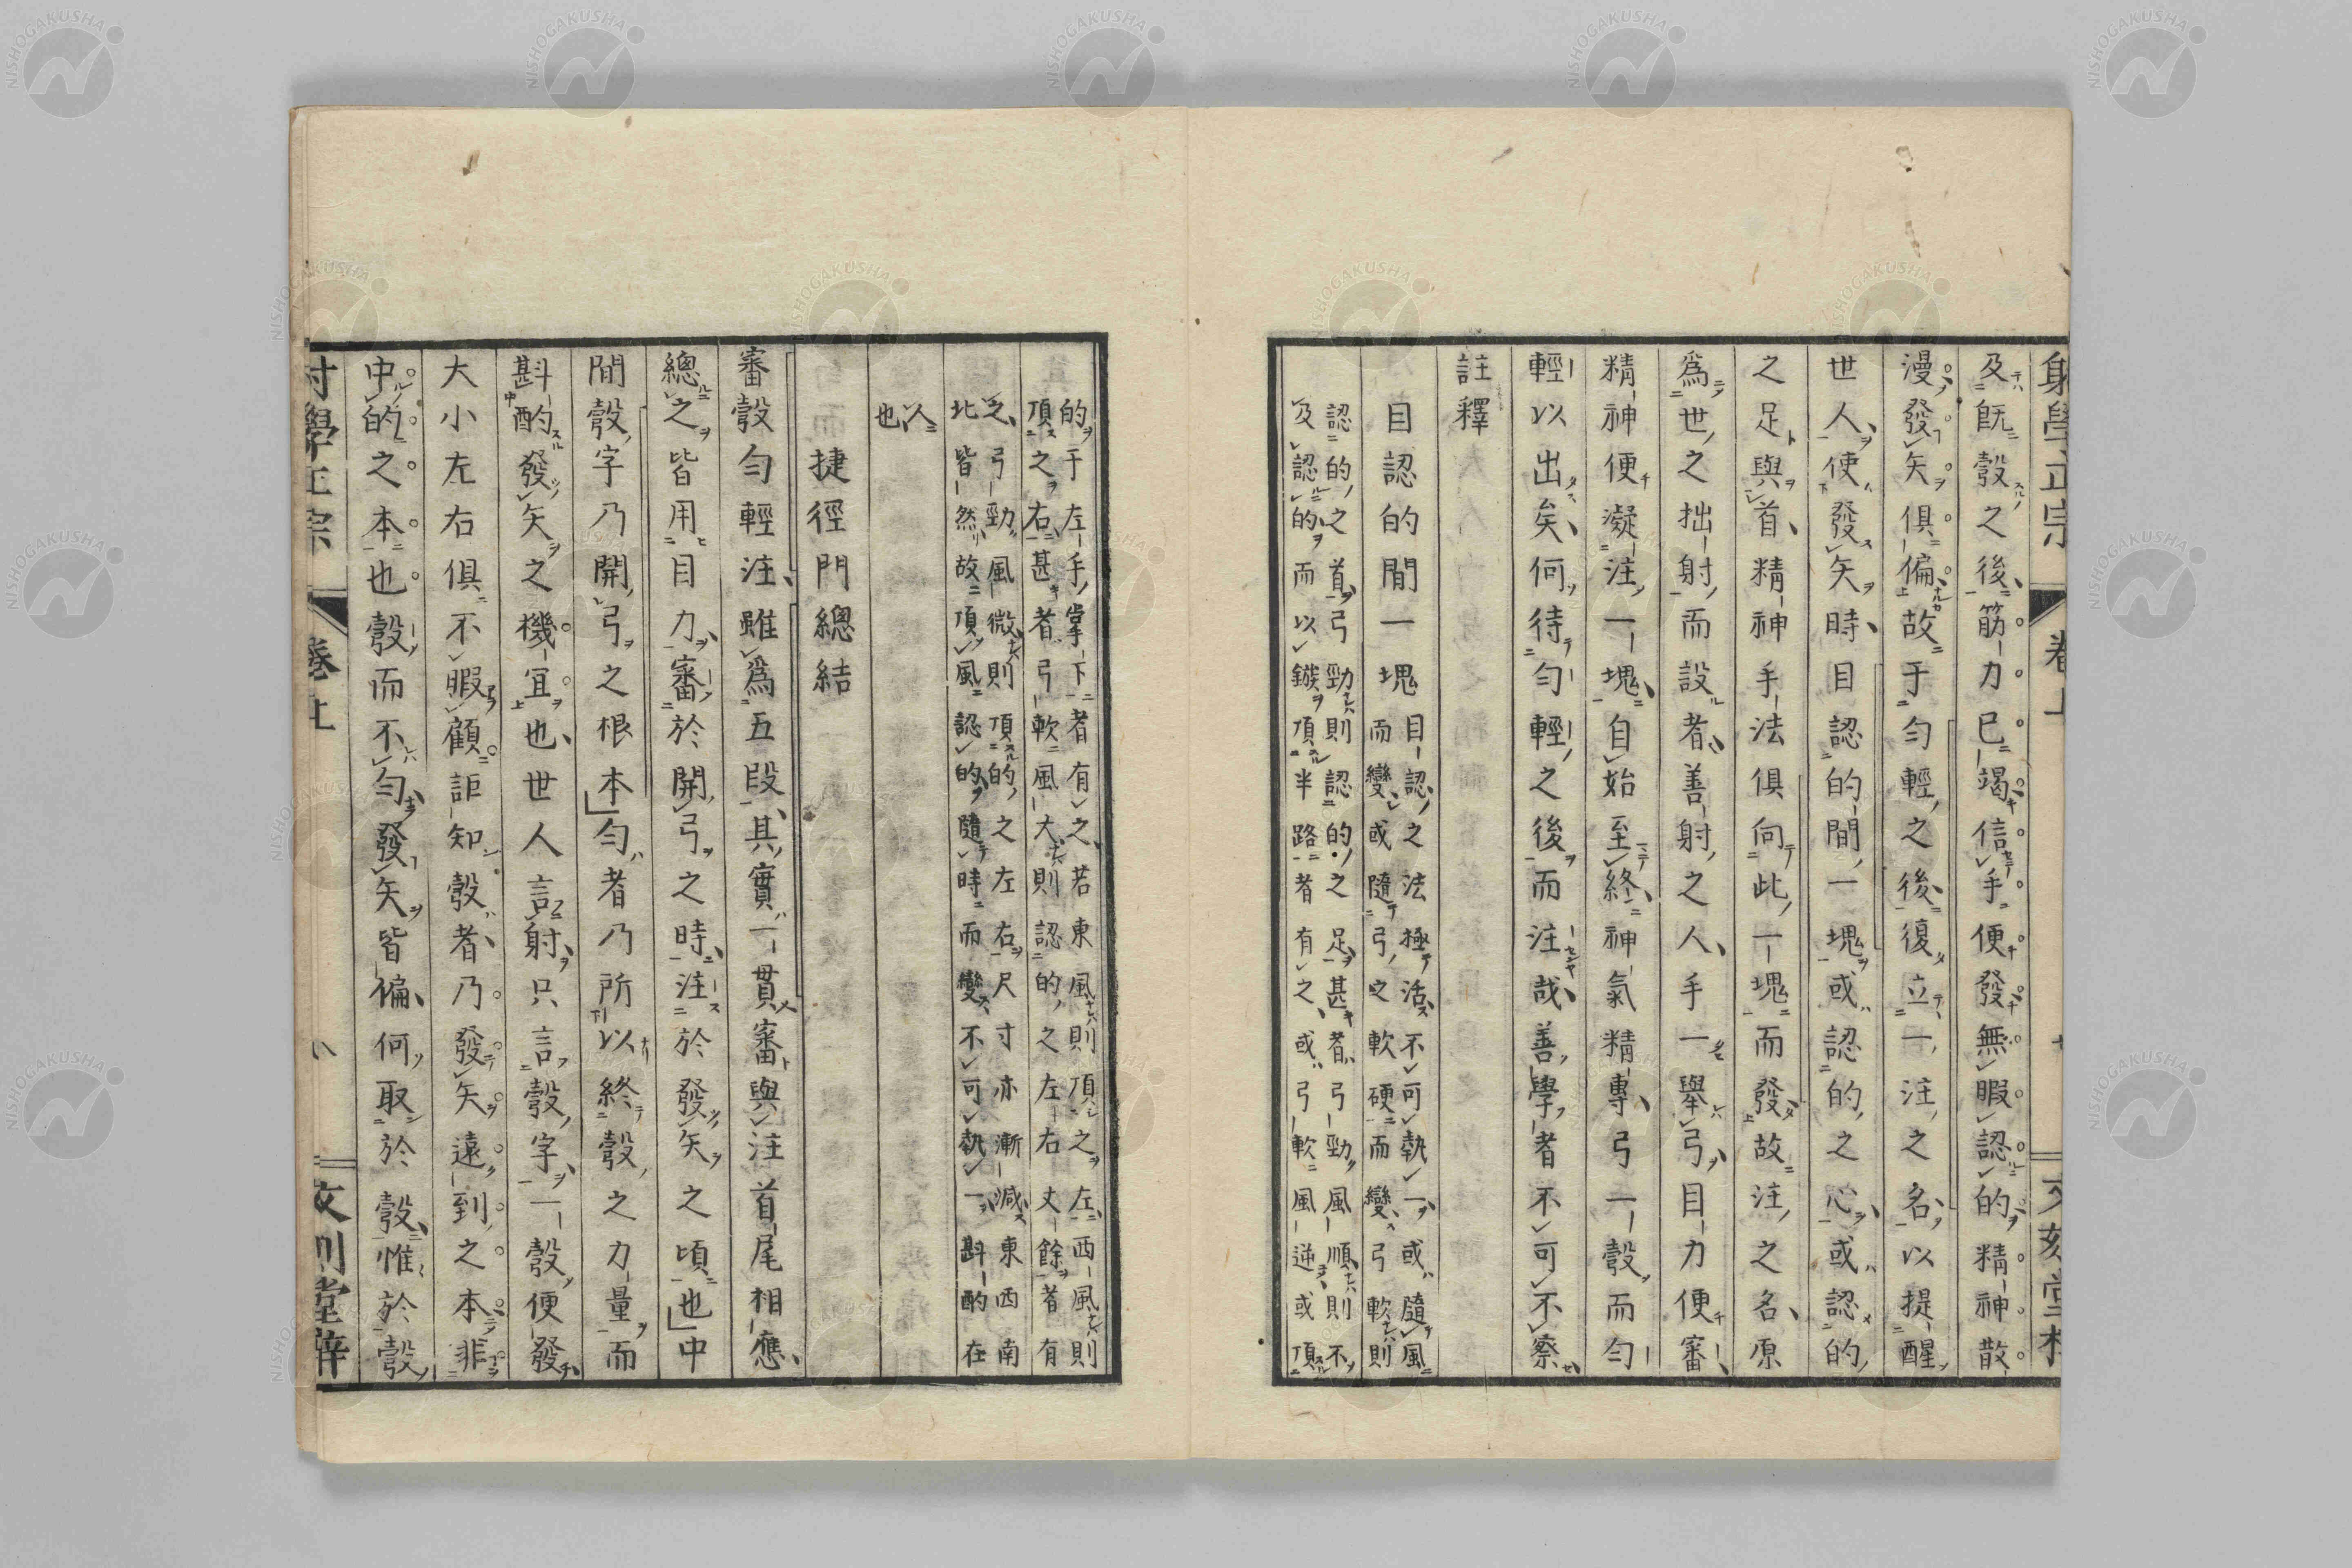 射學正宗 卷上 七 文刻堂梓
及既彀之後筋力已竭信手便發無暇認的精神散
漫發矢俱偏故于勻輕之後復立一注之名以提醒
世人使發矢時目認的間一塊或認的之心或認的
之足與首精神手法俱向此一塊而發故注之名原
爲世之拙射而設者善射之人手一舉弓目力便審
精神便凝注一塊自始至終神氣精專弓一彀而勻
輕以出矣何待勻輕之後而注哉善學者不可不察
註釋
目認的間一塊
目認之法極活不可執一或隨風
而變或隨弓之軟硬而變弓軟則
認的之首弓勁則認的之足甚者弓勁風順則不
及認的而以鏃頂半路者有之或弓軟風逆或頂
的于左手掌下者有之若東風則頂之左西風則
頂之右甚者弓軟風大則認的之左右丈餘者有
之弓勁風微則頂的之左右尺寸亦漸減東西南
北皆然故頂風認的隨時而變不可執一斟酌在
人
也
捷徑門總結
審彀勻輕注雖爲五段其實一貫審與注首尾相應
總之皆用目力審於開弓之時注於發矢之頃也中
間彀字乃開弓之根本勻者乃所以終彀之力量而
斟酌發矢之機宜也世人言射只言彀字一彀便發
大小左右俱不暇顧詎知彀者乃發矢遠到之本非
中的之本也彀而不勻發矢皆偏何取於彀惟於彀
射學正宗 卷上 八 文刻堂梓
NISHOGAKUSHA